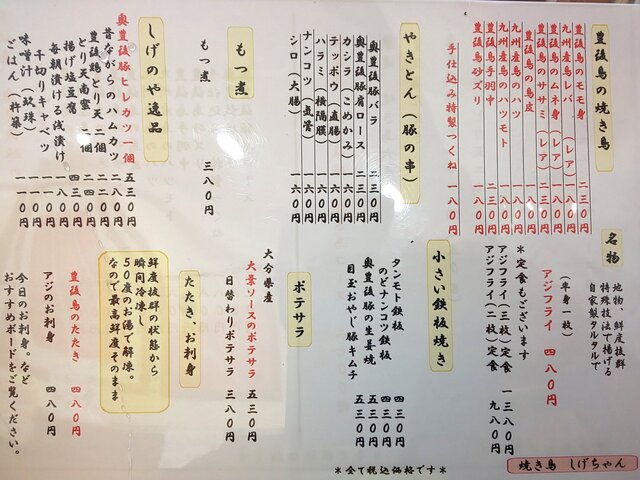 豊後鳥の焼き鳥
豊後鳥のモモ身 二三〇円
九州産鳥レバー(レア) 一八〇円
豊後鳥のムネ身(レア) 二三〇円
豊後鳥のササミ(レア) 二三〇円
豊後鳥の鳥皮 一八〇円
九州産鳥のハツ 一八〇円
九州産鳥のハツモト 一八〇円
豊後鳥手羽中 二三〇円
豊後鳥砂ズリ 一八〇円
手仕込み特製つくね 一八〇円
やきとん(豚の串)
奥豊後豚バラ 二三〇円
奥豊後豚肩ロース 二三〇円
カシラ(こめかみ) 一六〇円
テッポウ(直腸) 一六〇円
ハラミ(横隔膜) 一六〇円
ナンコツ(気管) 一六〇円
シロ(大腸) 一六〇円
もつ煮
もつ煮 三八〇円
しげのや逸品
奥豊後豚ヒレカツ一個 五三〇円
昔ながらのハムカツ 二八〇円
豊後鶏とり天 二個
とり天南蛮 二個
揚げ塩豆腐
毎朝漬ける浅漬け 一八〇円
千切りキャベツ 一一〇円
味噌汁(玖珠) 一一〇円
ごはん(杵築) 一一〇円
名物
地物、鮮度抜群
特殊技法で揚げる
自家製タルタルで
(半身一枚)
アジフライ 四八〇円
*定食もございます
アジフライ(三枚)定食 一三八〇円
アジフライ(二枚)定食 九八〇円
小さい鉄板焼き
タンモト鉄板 四三〇円
のどナンコツ鉄板 四三〇円
奥豊後豚の生姜焼 五三〇円
目玉おやじ豚キムチ 五三〇円
ポテサラ
大分県産
大葉ソースのポテサラ 五三〇円
日替わりポテサラ 三八〇円
たたき、お刺身
鮮度抜群の状態から
瞬間冷凍し
50度のお湯で解凍。
なので最高鮮度そのまま
豊後鳥のたたき 四八〇円
アジのお刺身 四八〇円
今日のお刺身。など
おすすめボードをご覧ください。
*全て税込価格です*
焼き鳥 しげちゃん